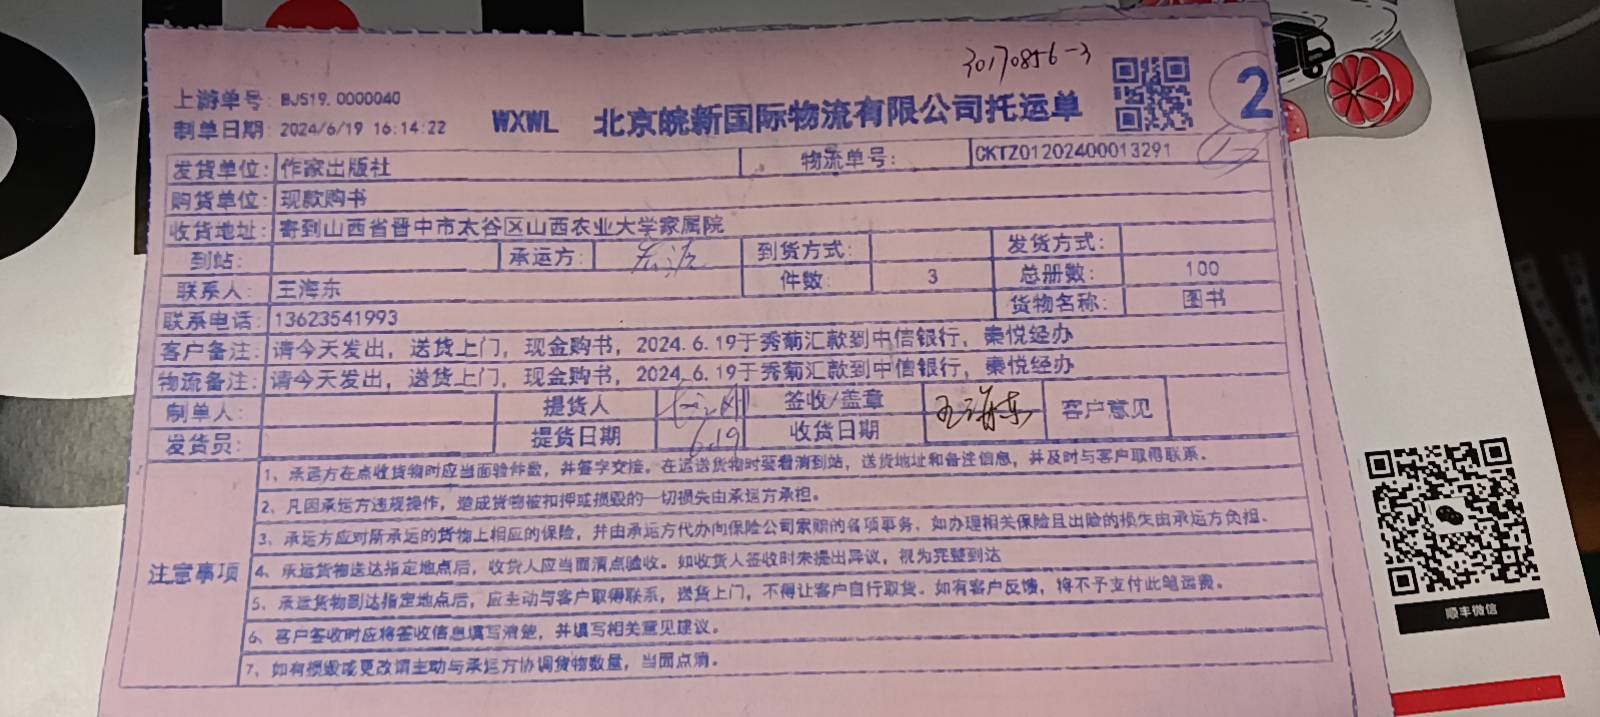 30170856-3
上游单号: BJS19.0000040
2
制单日期: 2024/6/19 16:14:22 WXWL 北京皖新国际物流有限公司托运单
发货单位: 作家出版社 物流单号: CKTZ01202400013291
购货单位: 现款购书
收货地址: 寄到山西省晋中市太谷区山西农业大学家属院
到站: 承运方: 到货方式: 发货方式:
联系人: 王海东 件数: 3 总册数: 100
联系电话: 13623541993 货物名称: 图书
客户备注: 请今天发出, 送货上门, 现金购书, 2024.6.19于秀菊汇款到中信银行, 秦悦经办
物流备注: 请今天发出, 送货上门, 现金购书, 2024.6.19于秀菊汇款到中信银行, 秦悦经办
制单人: 提货人 签收/盖章 王海东 客户意见
发货员: 提货日期 6.19 收货日期
注意事项
1、承运方在点收货物时应当面验件数, 并签字交接。在运送货物时要看清到站, 送货地址和备注信息, 并及时与客户取得联系。
2、凡因承运方违规操作, 造成货物被扣押或损毁的一切损失由承运方承担。
3、承运方应对所承运的货物上相应的保险, 并由承运方代办向保险公司索赔的各项事务。如办理相关保险且出险的损失由承运方负担。
4、承运货物送达指定地点后, 收货人应当面清点验收。如收货人签收时未提出异议, 视为完整到达
5、承运货物到达指定地点后, 应主动与客户取得联系, 送货上门, 不得让客户自行取货。如有客户反馈, 将不予支付此笔运费。
6、客户签收时应将签收信息填写清楚, 并填写相关意见建议。
7、如有损毁或更改请主动与承运方协调货物数量, 当面点清。
顺丰微信